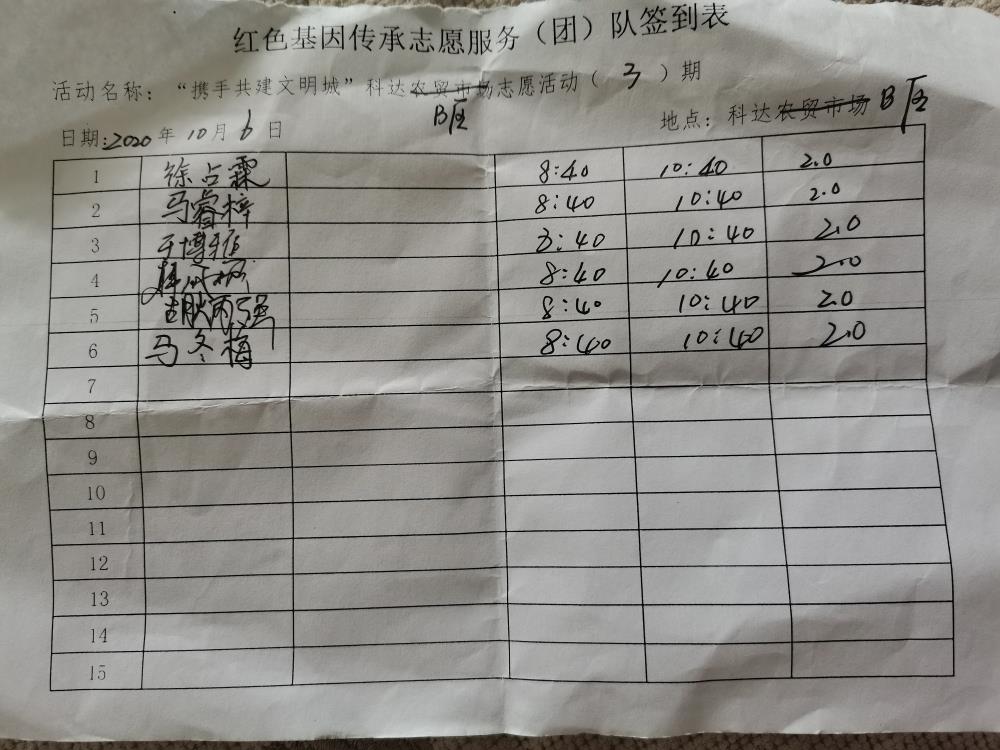 红色基因传承志愿服务（团）队签到表
活动名称：“携手共建文明城”科达农贸市场志愿活动（3）期
B区
日期：2020年10月6日 地点：科达农贸市场 B区
1 徐占霖 8:40 10:40 2.0
2 马睿梓 8:40 10:40 2.0
3 博雅 8:40 10:40 2.0
4 8:40 10:40 2.0
5 8:40 10:40 2.0
6 马冬梅 8:40 10:40 2.0
7
8
9
10
11
12
13
14
15